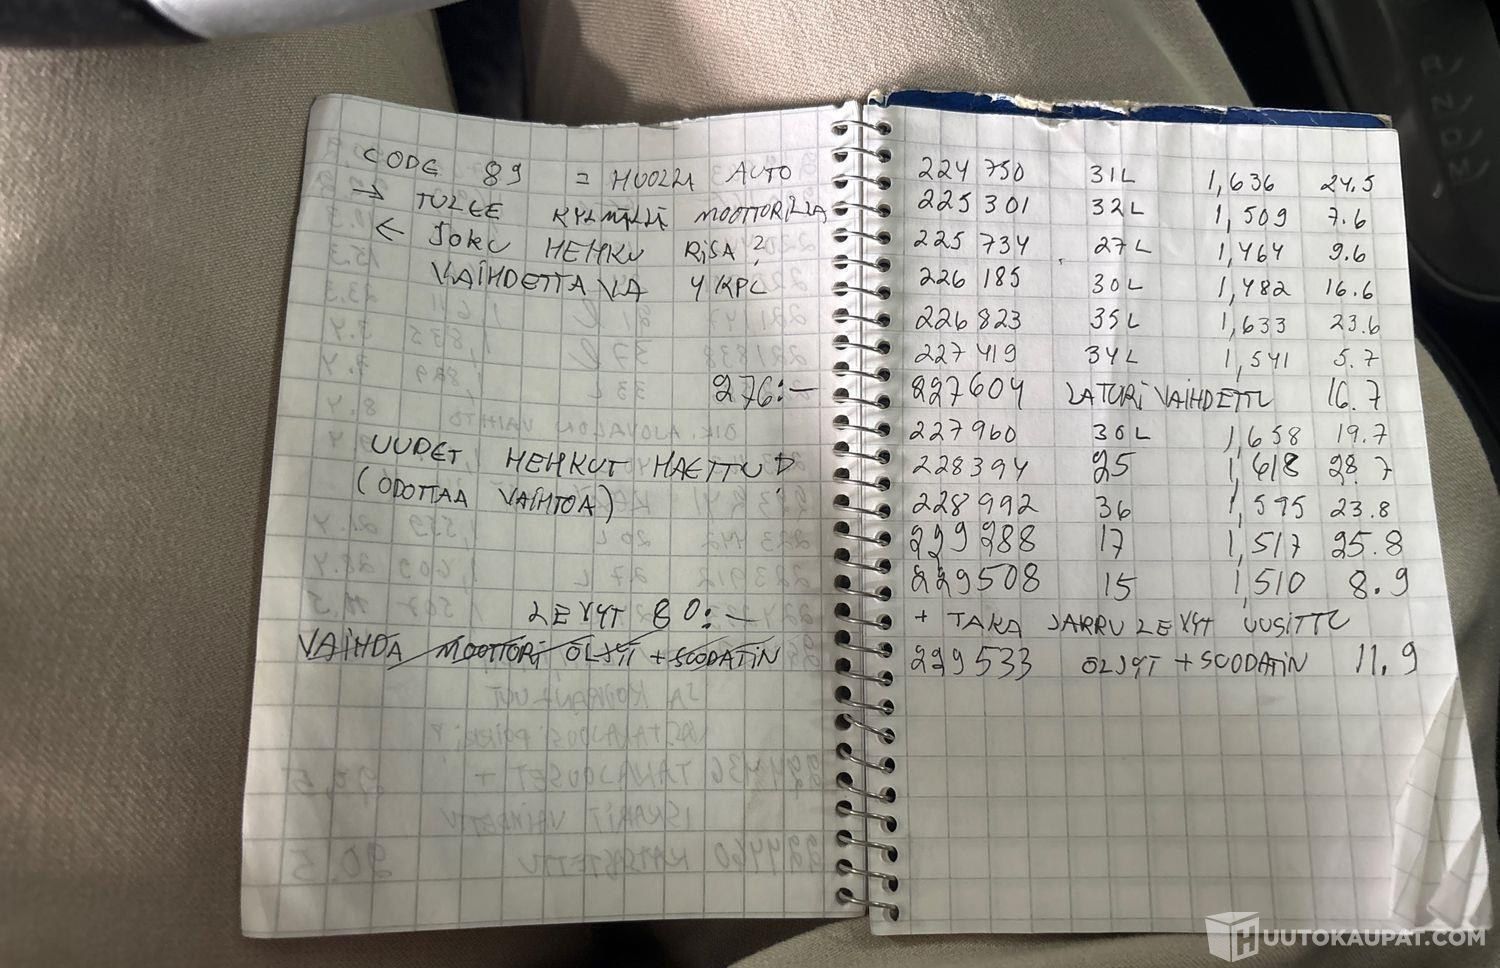 CODE 89 = HUOLLA AUTO
→ TULEE KYLMÄLLÄ MOOTTORILLA
← JOKU HEHKU RISA?
VAIHDETTAVA 4 KPL
276:-
UUDET HEHKUT HAETTU!
(ODOTTAA VAIHTOA)
LEVYT 80:-
VAIHDA MOOTTORI ÖLJYT + SUODATIN
224 750 31L 1,636 24.5
225 301 32L 1,509 7.6
225 734 27L 1,464 9.6
226 185 30L 1,482 16.6
226 823 35L 1,633 23.6
227 419 34L 1,541 5.7
227604 LATURI VAIHDETTU 16.7
227960 30L 1,658 19.7
228394 25 1,618 28.7
228992 36 1,595 23.8
229288 17 1,517 25.8
229508 15 1,510 8.9
+ TAKA JARRULEVYT UUSITTU
229533 ÖLJYT + SUODATIN 11.9
HUUTOKAUPAT.COM